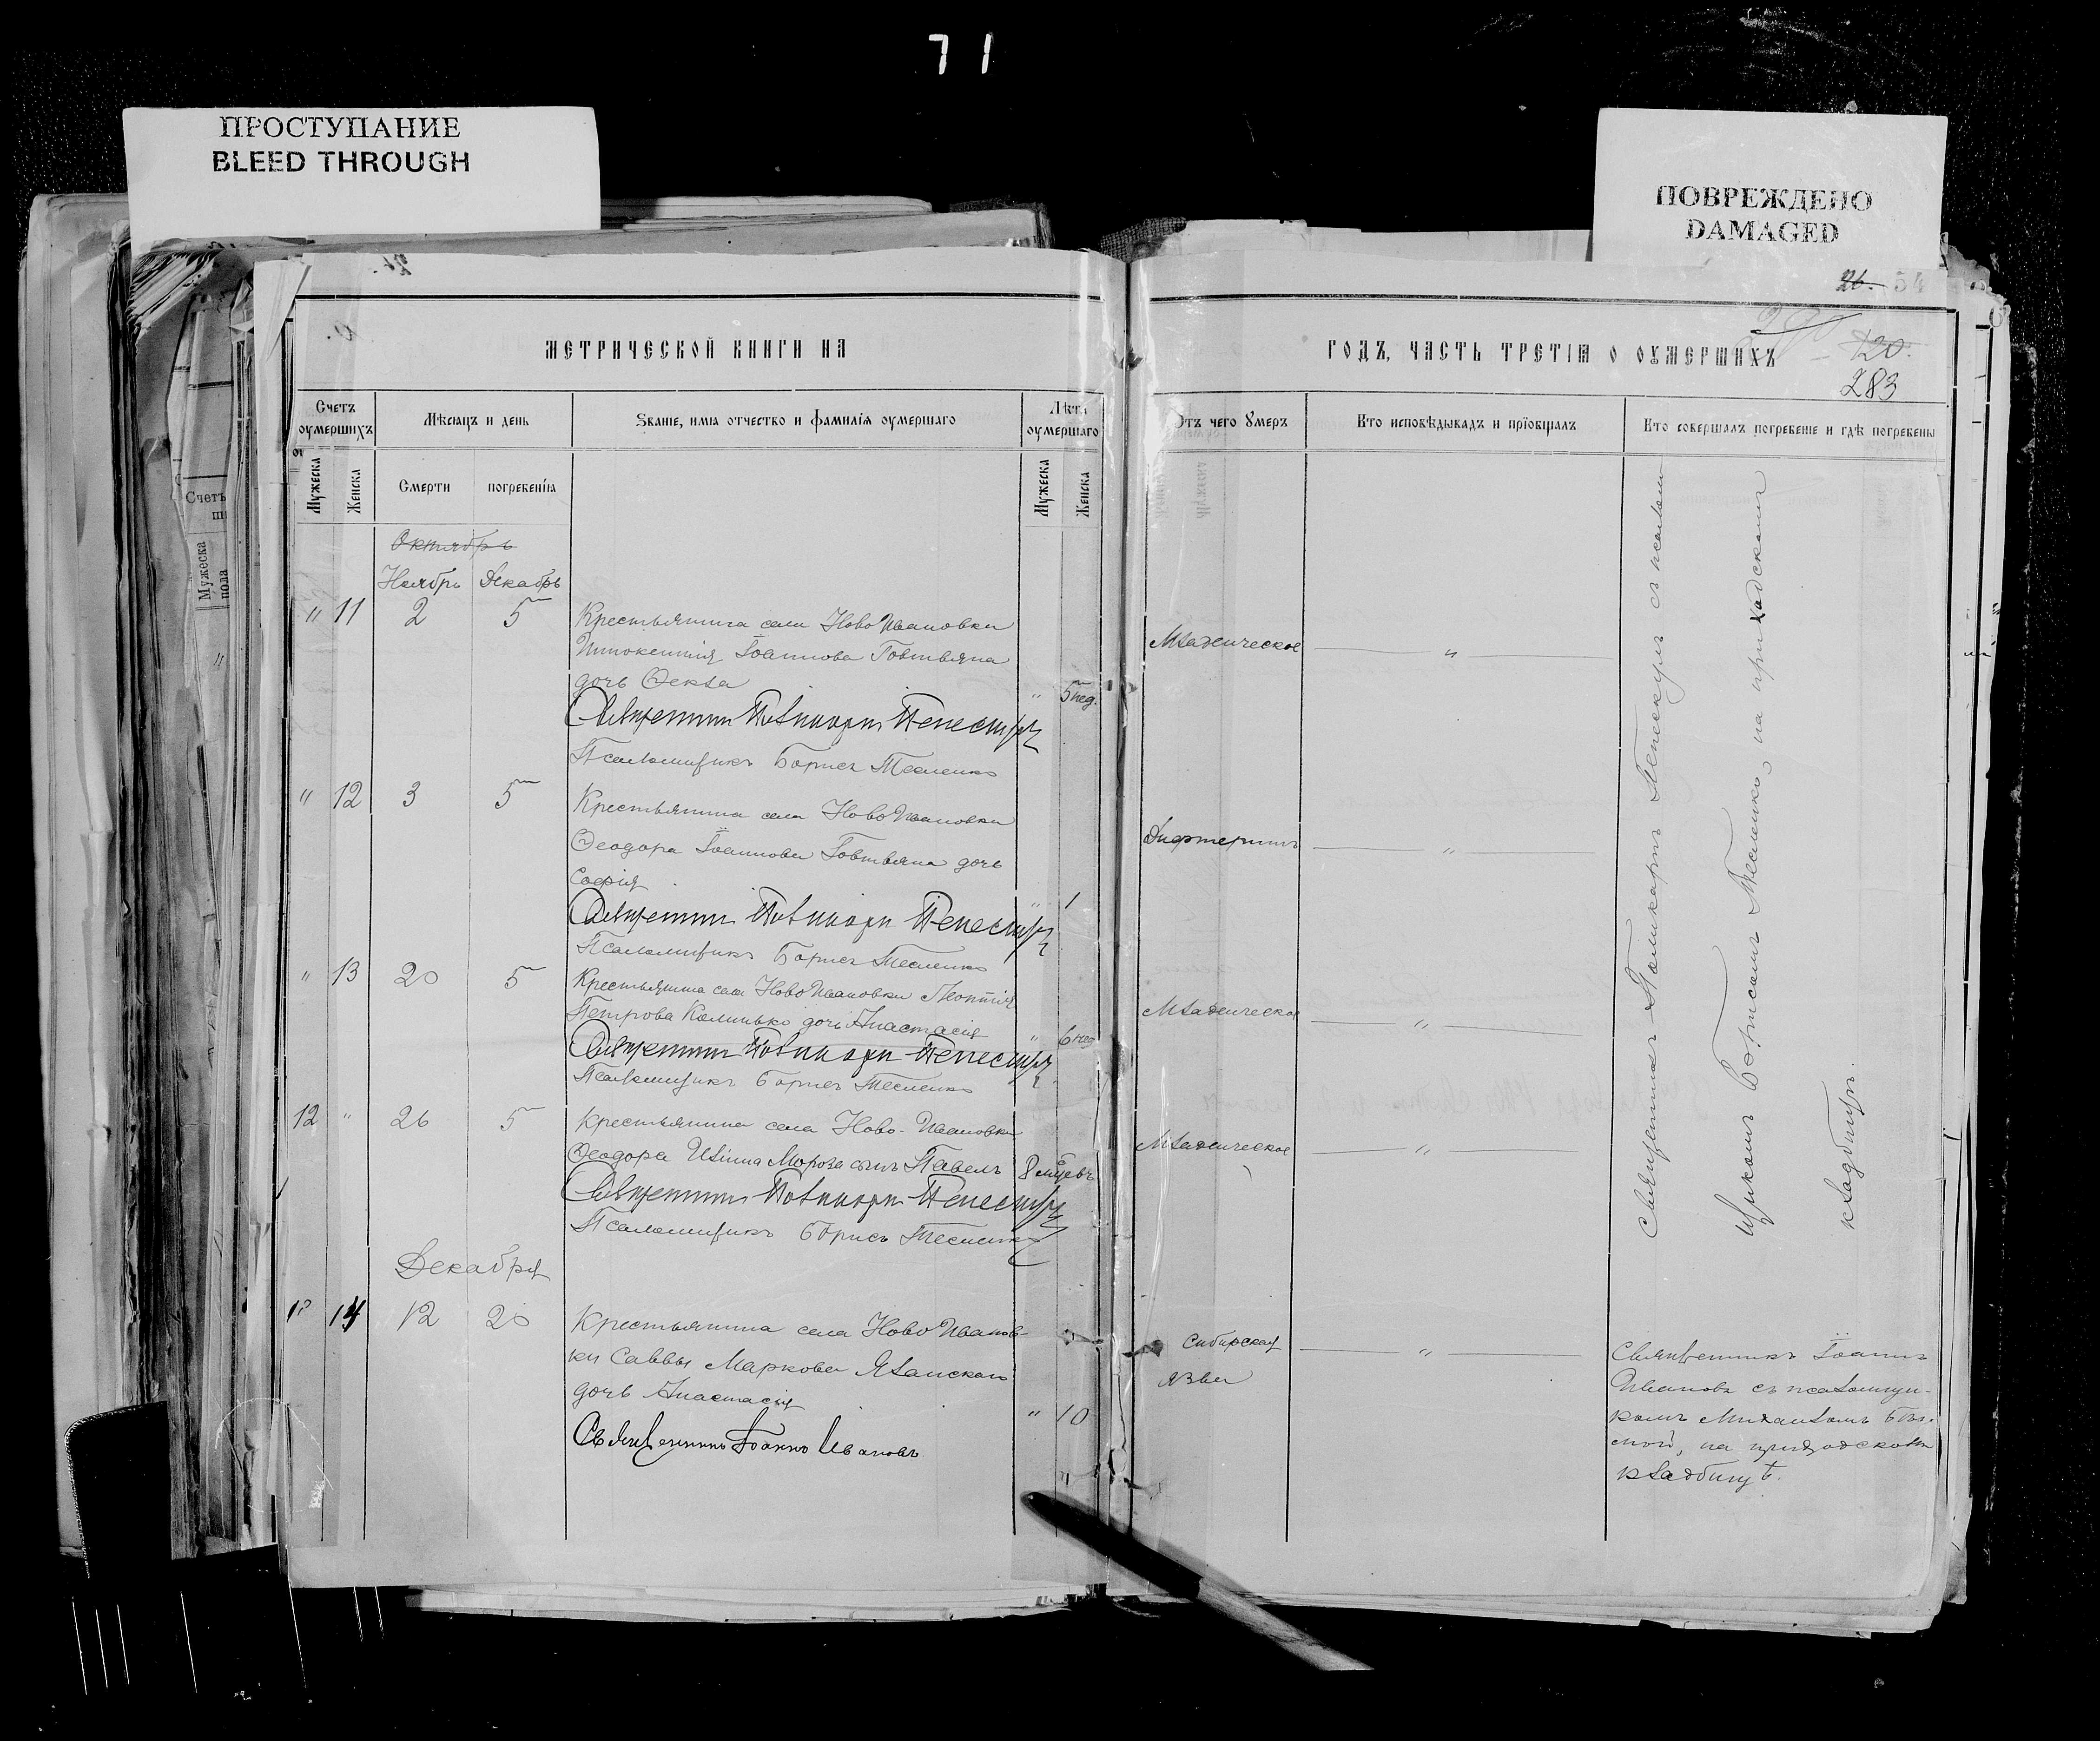 71
ПРОСТУПАНИЕ
BLEED THROUGH
ПОВРЕЖДЕНО
DAMAGED
26. 54
МЕТРИЧЕСКОЙ КНИГИ НА
ГОДЪ, ЧАСТЬ ТРЕТІЯ О ОУМЕРШИХЪ
120.
283
Счетъ оумершихъ
Мѣсяцъ и день
Званіе, имя отчество и фамилія оумершаго
Лѣта оумершаго
Отъ чего Умеръ
Кто исповѣдывалъ и пріобщалъ
Кто совершалъ погребеніе и гдѣ погребены
Мужеска
Женска
Смерти
погребенія
Мужеска
Женска
Счетъ
Мужеска пола
Октябрь
Ноябрь Декабрь
" 11 2 5 Крестьянина села Ново Ивановки
Иннокентія Іоаннова Говтвяна
дочь Ѳекла " 5 нед. Младенческое "
Священникъ Поликарпъ
Псаломщикъ Борисъ Тесленко
" 12 3 5 Крестьянина села Ново Ивановки
Ѳеодора Іоаннова Говтвяна дочь
Софія " 1 Дифтеритъ "
Священникъ Поликарпъ
Псаломщикъ Борисъ Тесленко
" 13 20 5 Крестьянина села Ново Ивановки Леонтія
Петрова дочь Анастасія " 6 нед Младенческое "
Священникъ Поликарпъ
Псаломщикъ Борисъ Тесленко
12 " 26 5 Крестьянина села Ново-Ивановки
Ѳеодора Иліина Мороза сынъ Павелъ 8 мѣсяцевъ Младенческое "
Священникъ Поликарпъ
Псаломщикъ Борисъ Тесленко
Священникъ Поликарпъ съ псалом
щикомъ Борисомъ Тесленко, на приходскомъ
кладбищѣ.
Декабря
14 12 20 Крестьянина села Ново Иванов-
ки Саввы Маркова
дочь Анастасія " 10
Священникъ Іоаннъ Ивановъ
Сибирская
язва "
Священникъ Іоаннъ
Ивановъ съ псаломщи-
комъ Михаиломъ
на приходскомъ
кладбищѣ.